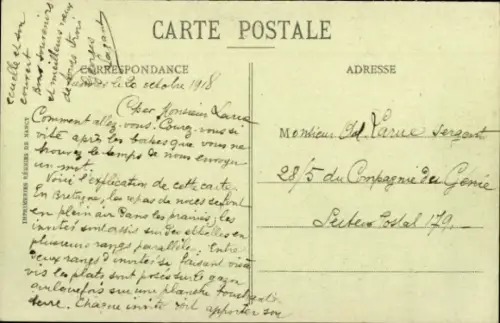 CARTE POSTALE
CORRESPONDANCE
ADRESSE
le 20 octobre 1918
Cher Monsieur Larue
Comment allez-vous. Courez-vous si
vite après les boches que vous ne
trouvez le temps de nous envoyer
un mot.
Voici l'explication de cette carte.
En Bretagne, les repas de noces se font
en plein air dans les prairies, les
invités sont assis sur des échelles en
plusieurs rangs parallèles. Entre
deux rangs d'invités se faisant vis à
vis les plats sont posés sur le gazon
ou parfois sur une planche touchant à
terre. Chaque invité doit apporter son
écuelle et son
couvert
Bons souvenirs
et meilleurs vœux
de tous trois
Georges
Monsieur Ad. Larue Sergent
28/5 du Compagnie du Génie
Secteur Postal 179.
IMPRIMERIES RÉUNIES DE NANCY